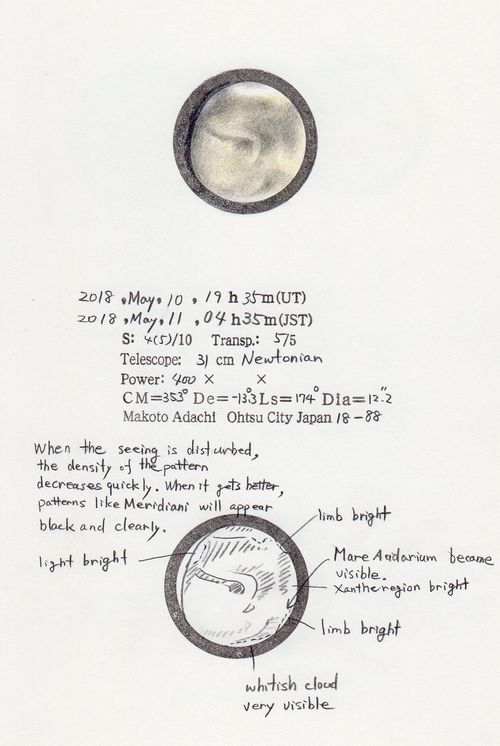 2018, May, 10, 19 h 35m (UT)
2018, May, 11, 04 h 35m (JST)
S: 4(5)/10 Transp.: 5/5
Telescope: 31 cm Newtonian
Power: 400 × ×
CM=353° De=-13.3 Ls=174° Dia=12."2
Makoto Adachi Ohtsu City Japan 18-88
When the seeing is disturbed,
the density of the pattern
decreases quickly. When it gets better,
patterns like Meridiani will appear
black and clearly.
limb bright
light bright
Mare became
visible.
Xanthe region bright
limb bright
whitish cloud
very visible